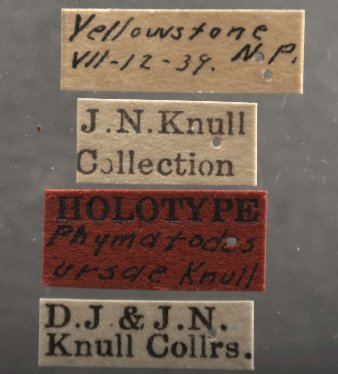 Yellowstone
VII-12-39. N.P.
J.N.Knull
Collection
HOLOTYPE
Phymatodes
ursae Knull
D.J & J.N.
Knull Collrs.